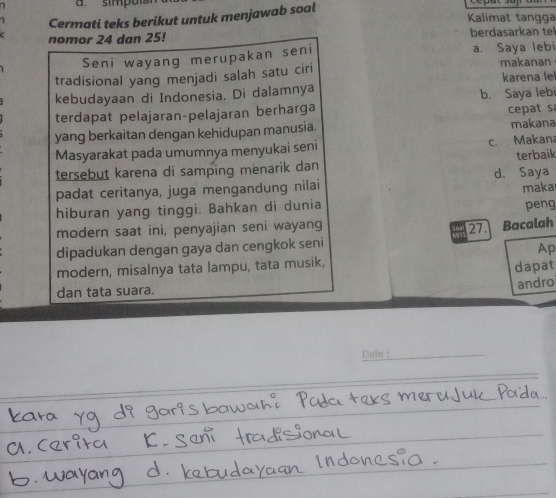 Cermati teks berikut untuk menjawab soal
nomor 24 dan 25!
Seni wayang merupakan seni
tradisional yang menjadi salah satu ciri
kebudayaan di Indonesia. Di dalamnya
terdapat pelajaran-pelajaran berharga
yang berkaitan dengan kehidupan manusia.
Masyarakat pada umumnya menyukai seni
tersebut karena di samping menarik dan
padat ceritanya, juga mengandung nilai
hiburan yang tinggi. Bahkan di dunia
modern saat ini, penyajian seni wayang
dipadukan dengan gaya dan cengkok seni
modern, misalnya tata lampu, tata musik,
dan tata suara.
Kalimat tangga
berdasarkan
a. Saya lebi
makanan
karena
b. Saya lebi
cepat
makana
c. Makana
terbaik
d. Saya
maka
peng
27. Bacalah
Ap
dapat
andro
Date :
kara yg di garisbawahi Pada teks merujuk Pada
a. cerita c. seni tradisional
b. wayang d. kebudayaan Indonesia.